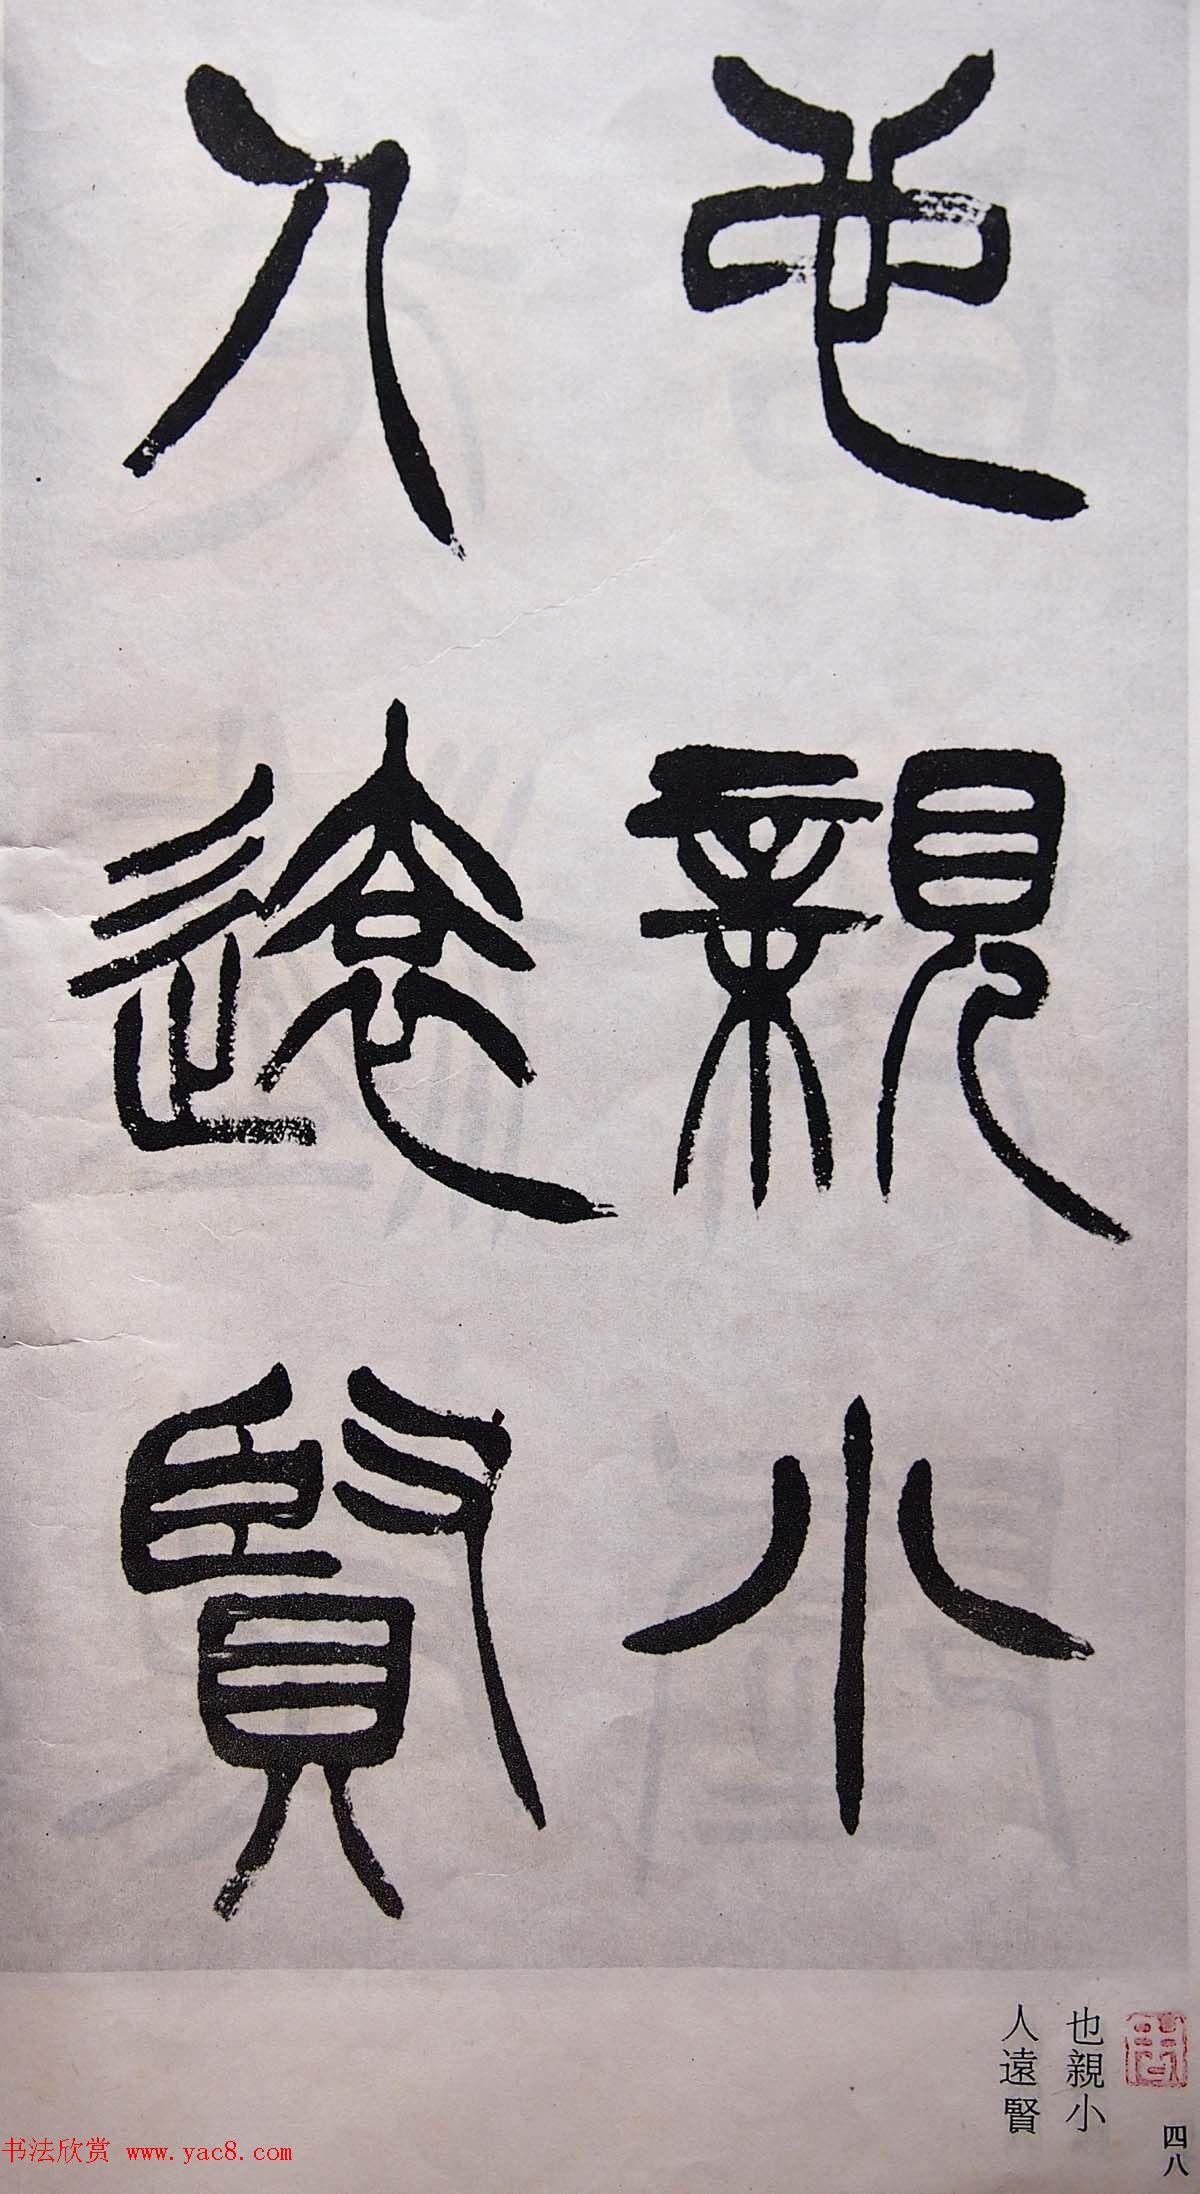 也親小
人遠賢
也親小
人遠賢
四八
书法欣赏 www.yac8.com